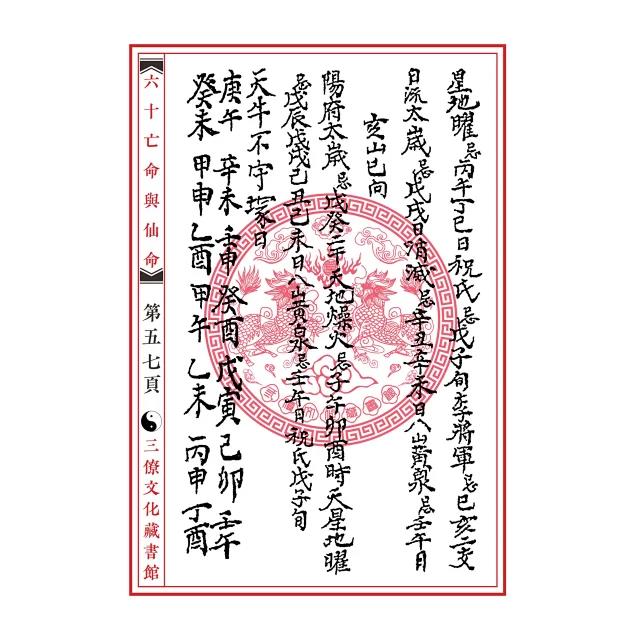 星地曜忌丙午丁巳日祝氏忌戊子旬李將軍忌巳亥二支
日流太歲忌戊戌日消滅忌辛丑辛未日八山黃泉忌壬午日
亥山巳向
陽府太歲忌戊癸二干天地燥火忌子午卯酉時天星地曜
忌戊辰戊戌己丑己未日八山黃泉忌壬午日祝氏戊子旬
天牛不守塚日
庚午 辛未 壬申 癸酉 戊寅 己卯 壬午
癸未 甲申 乙酉 甲午 乙未 丙申 丁酉
六十亡命與仙命
第五七頁
三僚文化藏書館